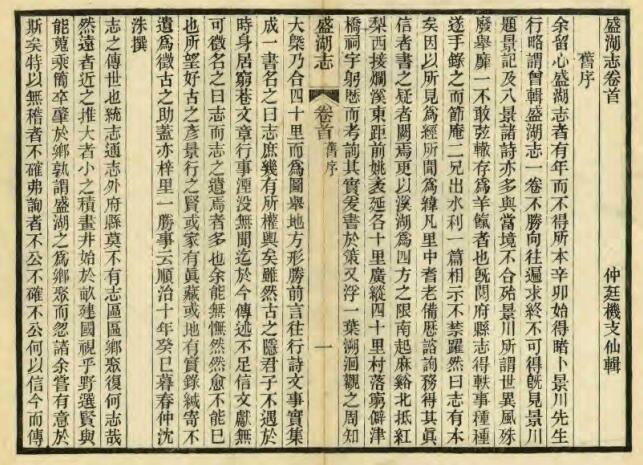 盛湖志卷首
仲廷機支仙輯
舊序
余留心盛湖志者有年而不得所本辛卯始得睹卜景川先生
行略謂曾輯盛湖志一卷不勝向往遍求終不可得旣見景川
題景記及八景諸詩亦多與當境不合殆景川所謂世異風殊
廢舉靡一不敢弦轍存為羊餼者也旣閱府縣志得軼事種種
遂手錄之而節庵二兄出水利一篇相示不禁躍然曰志有本
矣因以所見為經所聞為緯凡里中耆老備歷諮詢務得其眞
信者書之疑者闕焉更以溪湖為四方之限南起麻谿北抵紅
梨西接爛溪東距前姚袤延各十里廣縱四十里村落窮僻津
橋祠宇躬歷而考詢其實爰書於策又浮一葉溯洄觀之周知
盛湖志
卷首
舊序
一
大槩乃合四十里而為圖舉地方形勝前言往行詩文事實集
成一書名之曰志庶幾有所權輿矣雖然古之隱君子不遇於
時身居窮巷文章行事湮没無聞迄於今傳述不足信文獻無
可徵名之曰志而志之遺焉者多也余能無慨然然愈不能已
也所望好古之彥景行之賢或家有眞藏或地有實錄緘寄不
遺為徵古之助蓋亦梓里一勝事云順治十年癸巳暮春仲沈
洙撰
志之傳世也統志通志外府縣莫不有志區區鄉聚復何志哉
然遠者近之推大者小之積畫井始於畝建國視乎野選賢與
能蒐乘簡卒肇於鄉孰謂盛湖之為鄉聚而忽諸余嘗有意於
斯矣特以無稽者不確弗詢者不公不確不公何以信今而傳